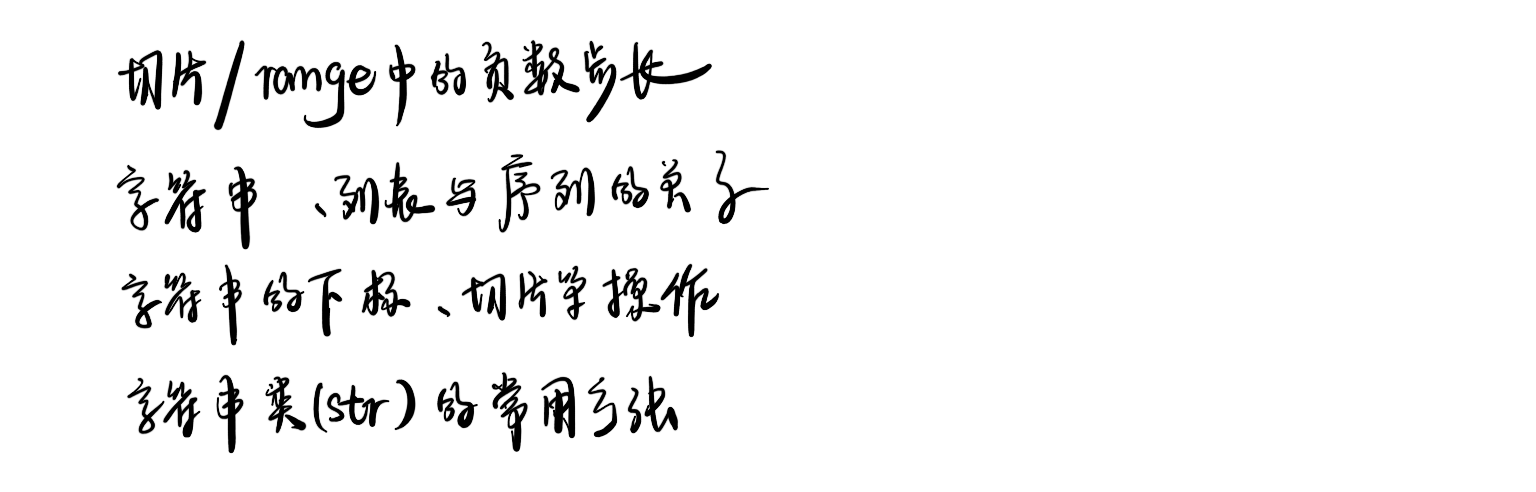 切片/range中的负数步长
字符串、列表与序列的关系
字符串的下标、切片等操作
字符串类(str)的常用方法